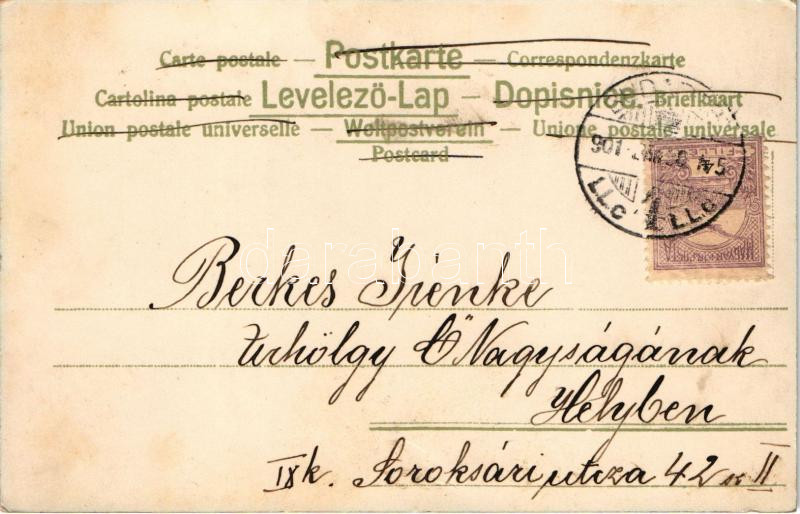 Carte postale — Postkarte — Correspondenzkarte
Cartolina postale Levelezö-Lap — Dopisnice. Briefkaart
Union postale universelle — Weltpostverein — Unione postale universale
Postcard
901
LLC LLC
MAGYAR KIR. POSTA
darabanth
Berkes Irénke
Urhölgy Ő Nagyságának
Helyben
IXk. Soroksári utcza 42 sz II